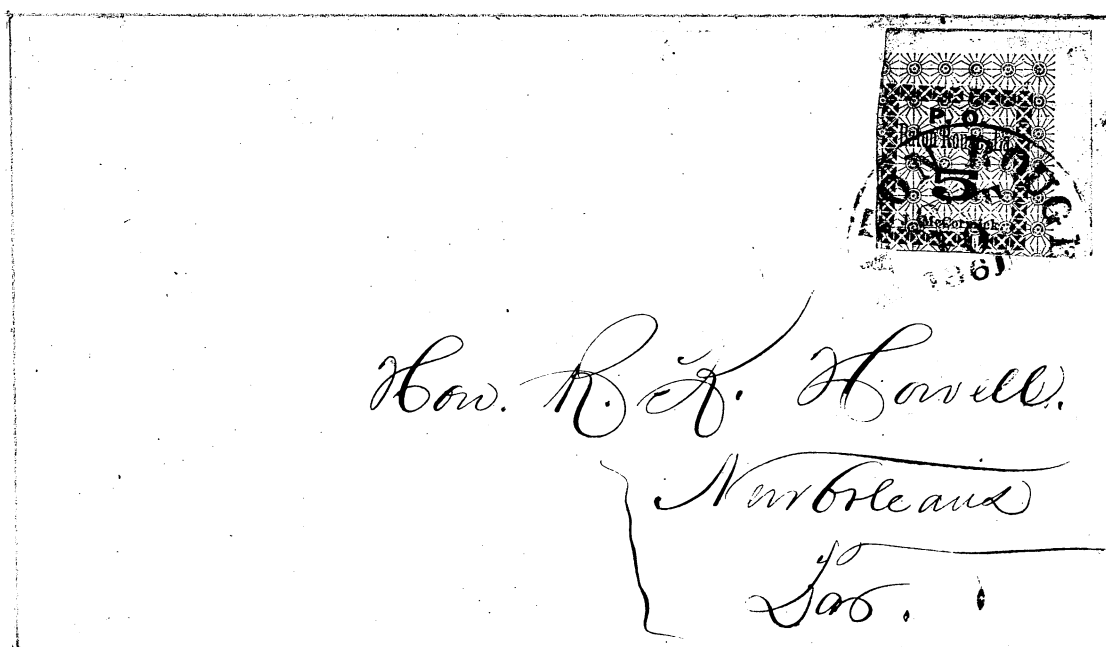 P. O.
Baton Rouge, La.
5
McCormick
TON ROUGE
1861
Hon. R. K. Howell.
New Orleans
La.